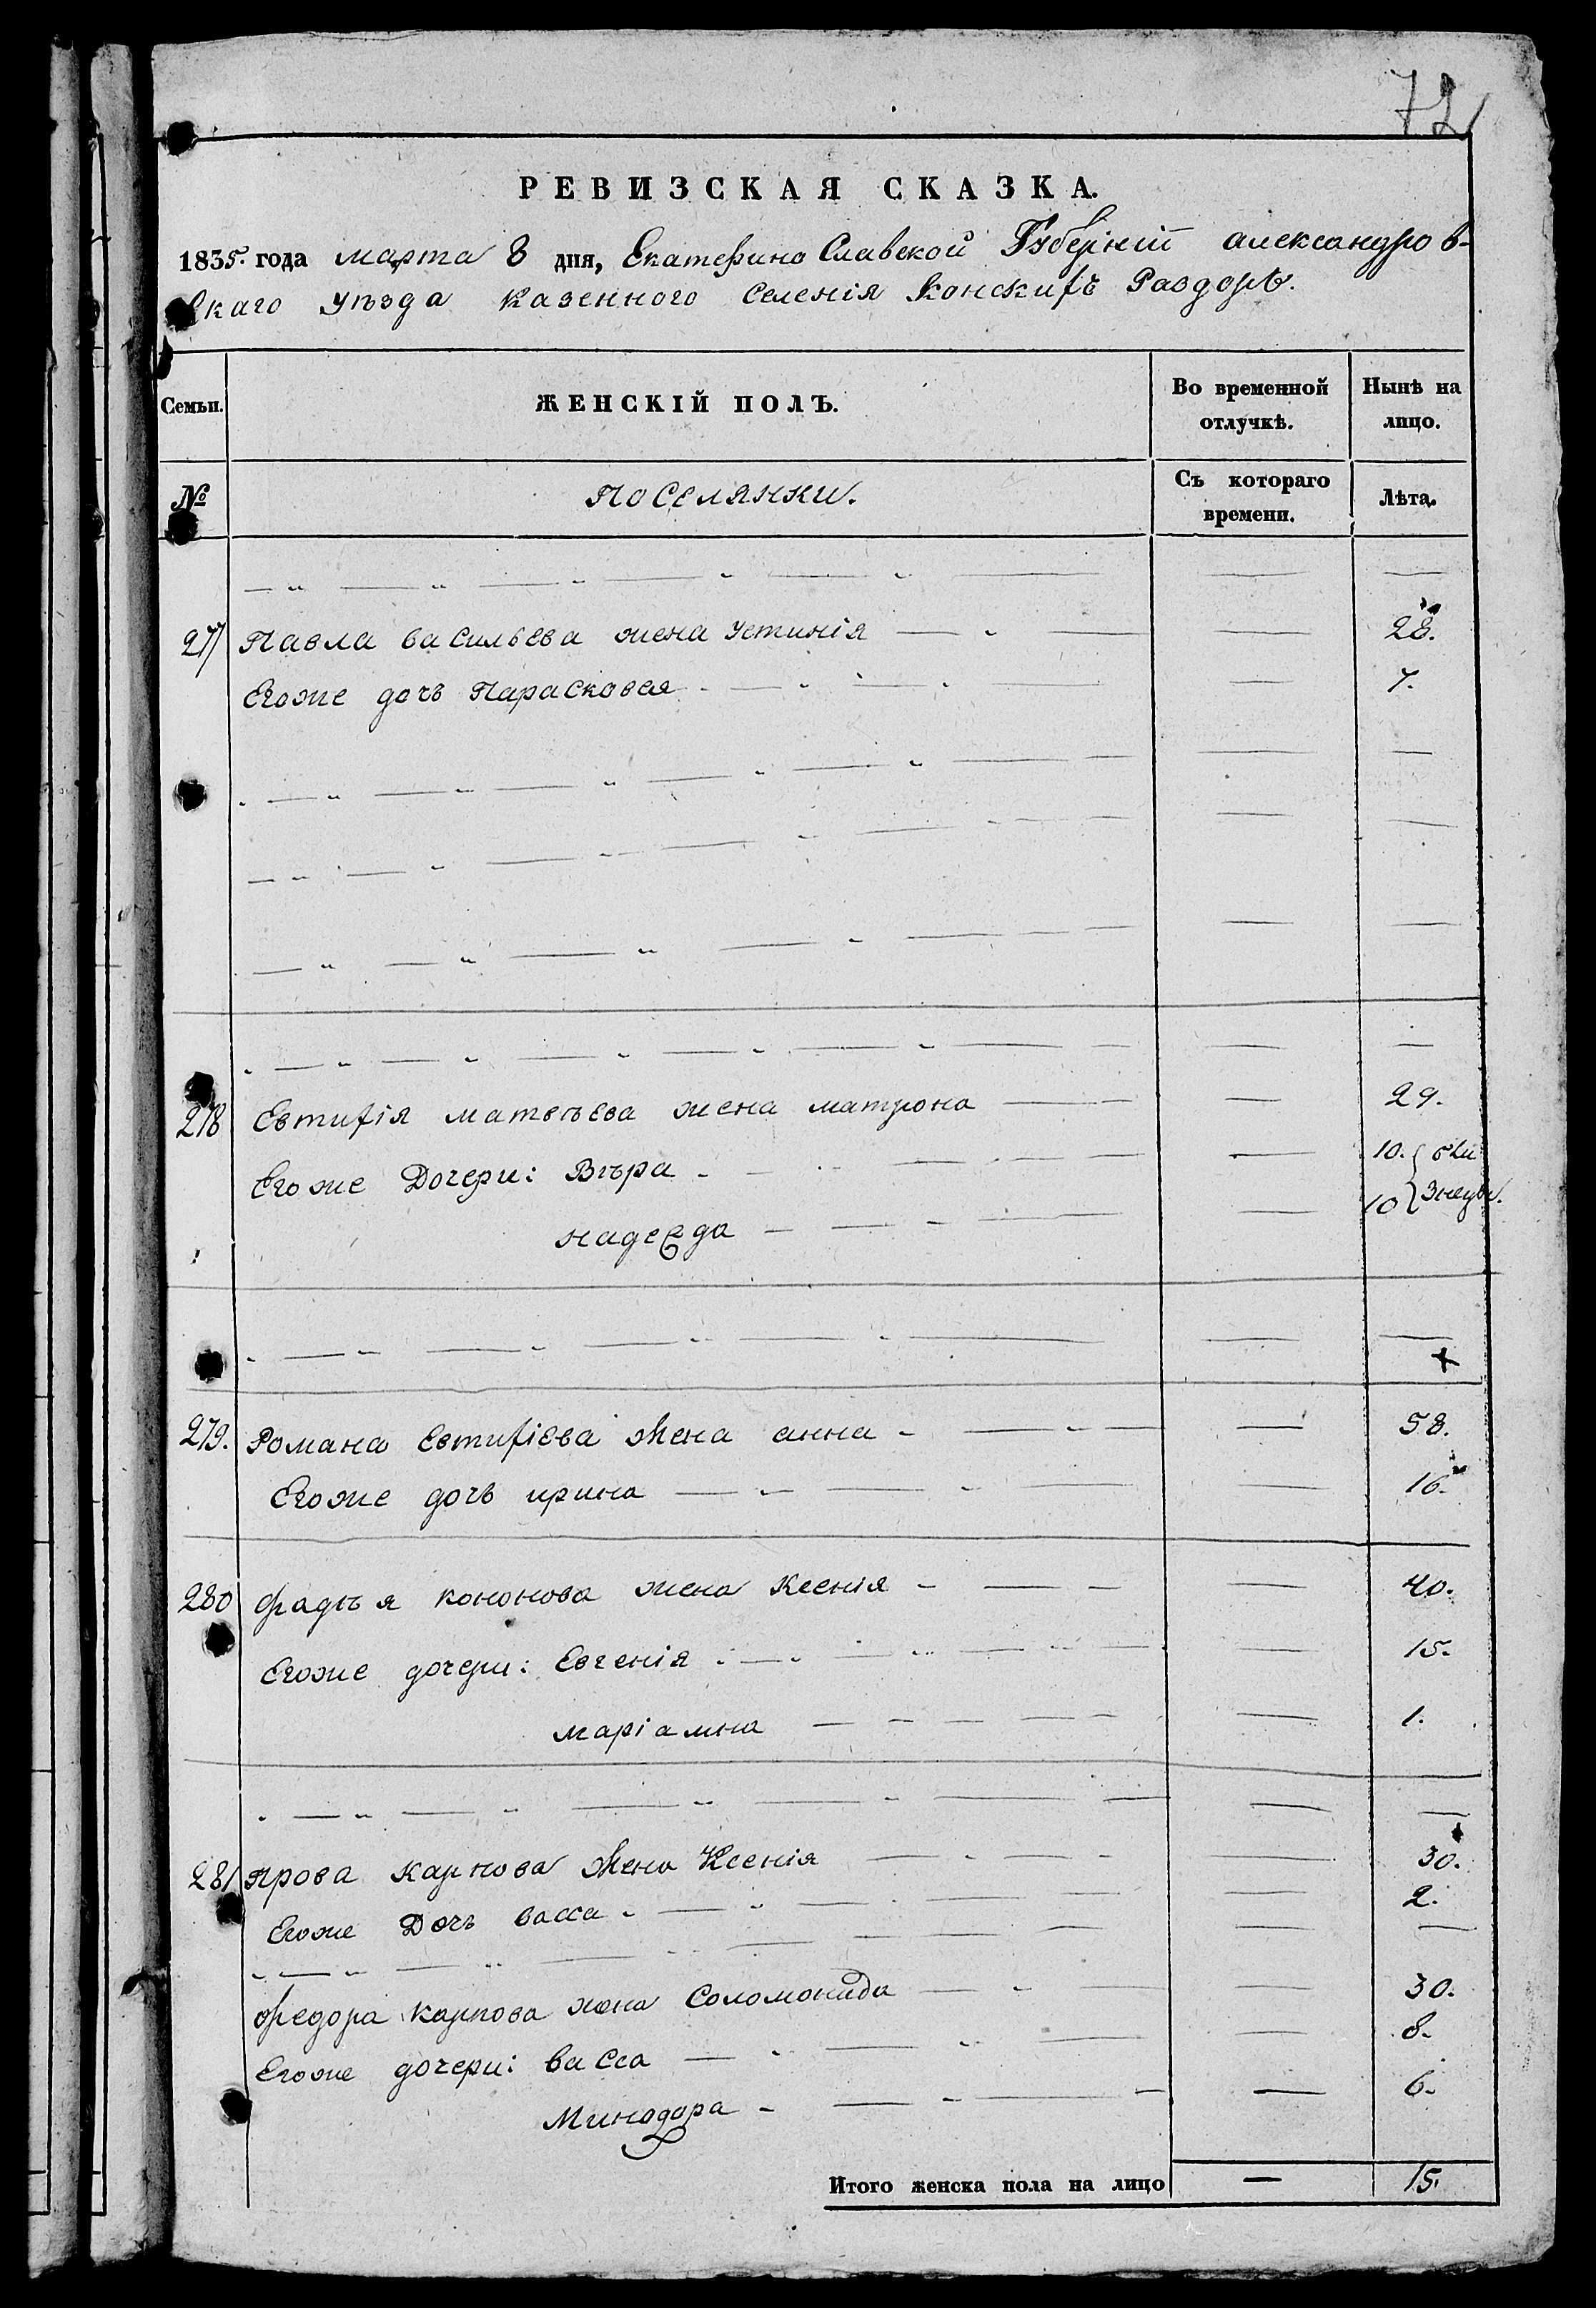 72
РЕВИЗСКАЯ СКАЗКА.
1835. года марта 8 дня, Екатерино Славской Губерніи александров-
скаго уѣзда казенного Селенія Конскихъ Раздоръ.
Семьи. ЖЕНСКІЙ ПОЛЪ. Во временной отлучкѣ. Нынѣ на лицо.
№ Поселянки. Съ котораго времени. Лѣта.
277 Павла васильева жена устинія 28.
Егоже дочь Парасковея 7.
278 Евтихія матвѣева жена матрона 29.
Егоже Дочери: Вѣра 10.
надежда 10
279. Романа Евтихіева Жена анна 58.
Егоже дочь ирина 16.
280 фадѣя кононова жена Ксенія 40.
Егоже дочери: Евгенія 15.
маріамна 1.
281 Прова карпова Жена Ксенія 30.
Егоже Дочь васса 2.
Федора карпова жена Соломонида 30.
Егоже дочери: васса 8.
Минодора 6.
Итого женска пола на лицо — 15.